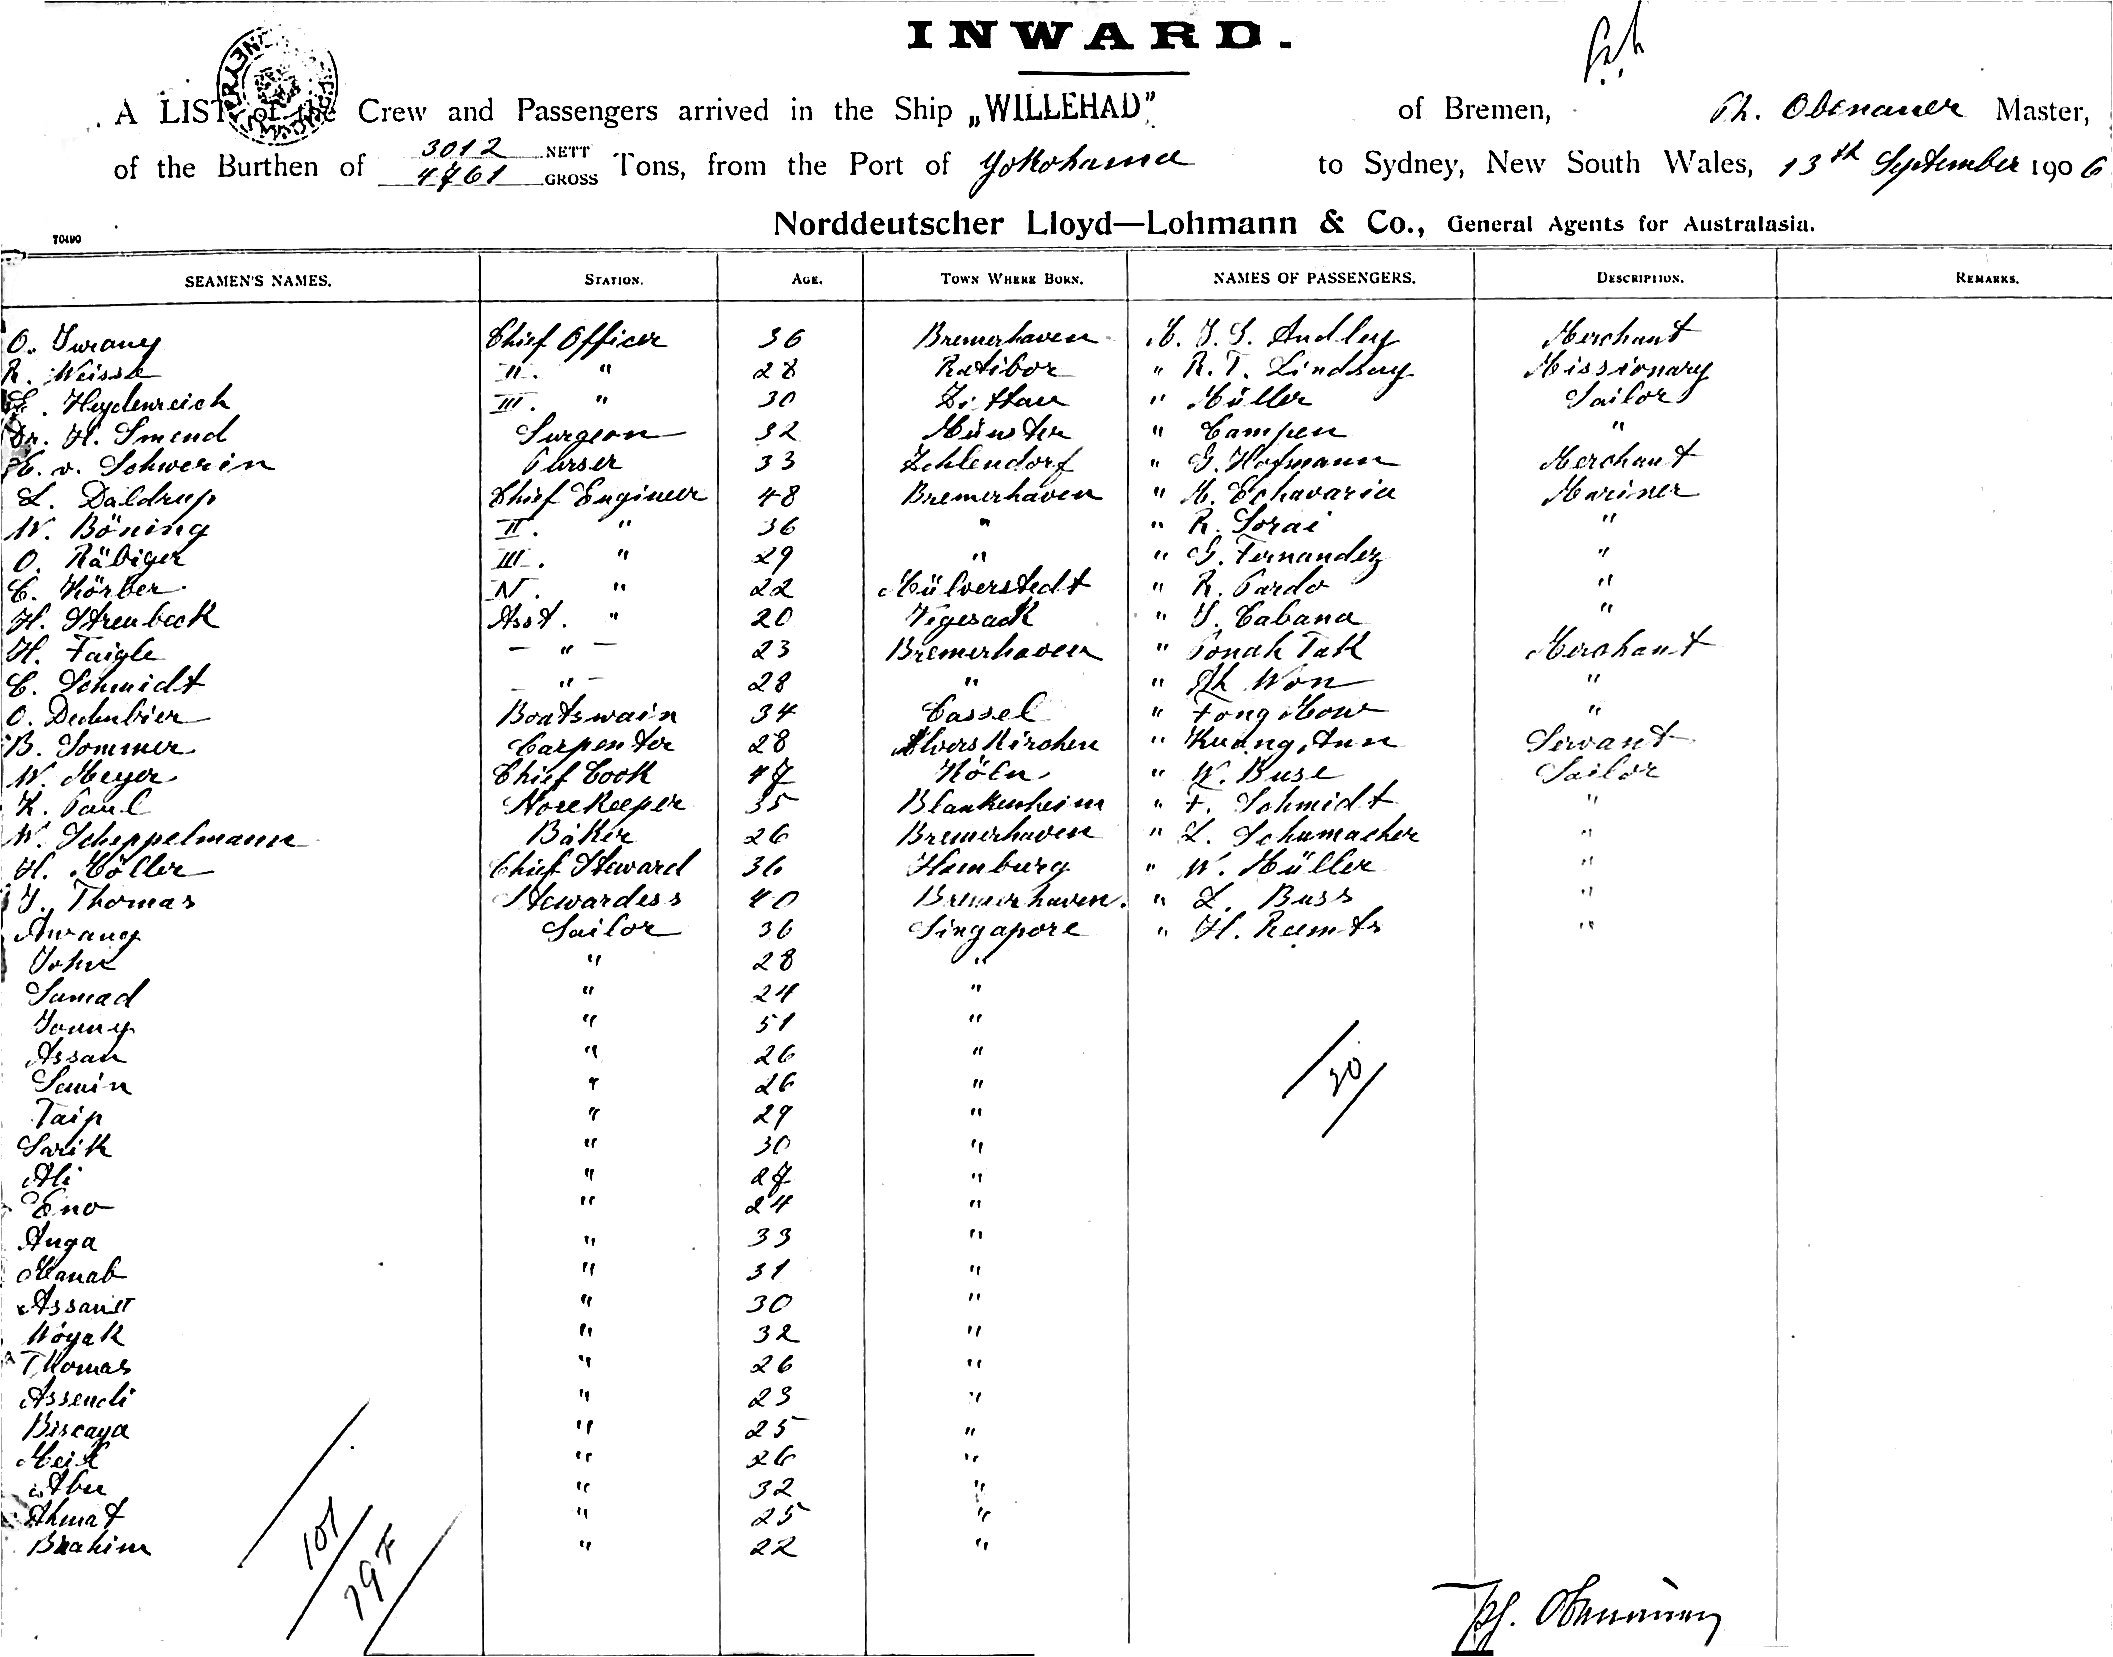 INWARD.
A LIST of the Crew and Passengers arrived in the Ship „WILLEHAD” of Bremen, Th. Obenauer Master,
of the Burthen of 3012 NETT 4761 GROSS Tons, from the Port of Yokohama to Sydney, New South Wales, 13th September 1906
Norddeutscher Lloyd—Lohmann & Co., General Agents for Australasia.
70490
SEAMEN'S NAMES. STATION. AGE. TOWN WHERE BORN. NAMES OF PASSENGERS. DESCRIPTION. REMARKS.
O. Chief Officer 36 Bremerhaven M. J. S. Audley Merchant
R. Weisse II. " 28 Ratibor " R. T. Lindsay Missionary
Heydenreich III. " 30 Zittau " Müller Sailor
Dr. H. Smend Surgeon 32 Münster " Campen "
E. v. Schwerin Purser 33 Zehlendorf " G. Hofmann Merchant
L. Daldrup Chief Engineer 48 Bremerhaven " M. Echavaria Mariner
W. Böning II. " 36 " " R. Lorai "
O. Räbiger III. " 29 " " G. Fernandez "
C. Körber IV. " 22 Mülverstedt " R. Pardo "
H. Strenbeck Asst. " 20 Vegesack " J. Cabana "
H. Faigle — " — 23 Bremerhaven " Ponah Tak Merchant
C. Schmidt — " — 28 " " Ah Won "
O. Dechubier Boatswain 34 Cassel " Fong Mow "
B. Sommer Carpenter 28 Alverskirchen " Kuang Ann Servant
W. Meyer Chief Cook 47 Köln " W. Buse Sailor
K. Paul Storekeeper 35 Blankenheim " F. Schmidt "
W. Scheppelmann Baker 26 Bremerhaven " L. Schumacher "
H. Möller Chief Steward 36 Hamburg " W. Müller "
J. Thomas Stewardess 40 Bremerhaven. " L. Buss "
Awang Sailor 36 Singapore " H. Reemts "
John " 28 "
Samad " 24 "
Jonny " 51 "
Assan " 26 "
Samin " 26 "
Taip " 29 "
Sarik " 30 "
Ali " 27 "
Eno " 24 "
Anga " 33 "
Manab " 31 "
Assan II " 30 "
Woyak " 32 "
Thomas " 26 "
Assendi " 23 "
Biscaya " 25 "
Meik " 26 "
Abu " 32 "
Ahmat " 25 "
Brahim " 22 "
20
101
79 F
Th. Obenauer